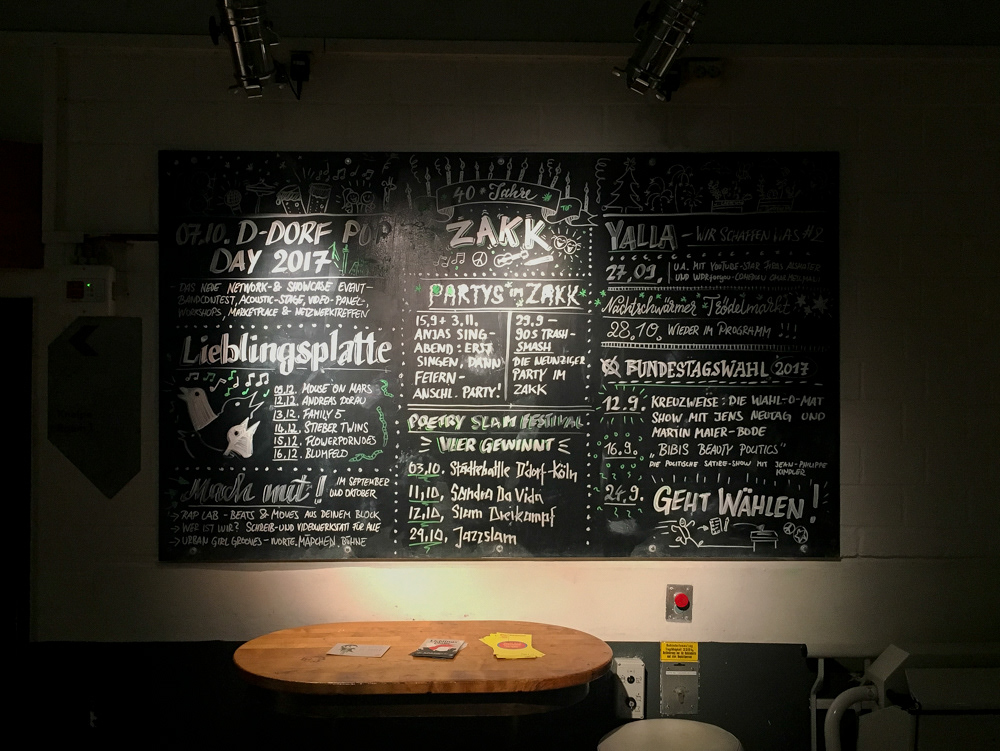 07.10. D-DORF POP
DAY 2017
DAS NEUE NETWORK- & SHOWCASE EVENT-
BANDCONTEST, ACOUSTIC-STAGE, VIDEO-PANEL-
WORKSHOPS, MARKETPLACE & NETZWERKTREFFEN
Lieblingsplatte
09.12. MOUSE ON MARS
12.12. ANDREAS DORAU
13.12. FAMILY 5
14.12. STIEBER TWINS
15.12. FLOWERPORNOES
16.12. BLUMFELD
Mach mit! IM SEPTEMBER
UND OKTOBER
→ RAP LAB - BEATS & MOVES AUS DEINEM BLOCK
→ WER IST WIR? SCHREIB- UND VIDEOWERKSTATT FÜR ALLE
→ URBAN GIRL GROOVES - WORTE, MÄDCHEN, BÜHNE
40 Jahre
ZAKK
PARTYS im ZAKK
15.9 + 3.11.
ANJAS SING-
ABEND: ERST
SINGEN, DANN
FEIERN -
ANSCHL. PARTY!
29.9 -
90S TRASH-
SMASH
DIE NEUNZIGER
PARTY IM
ZAKK
POETRY SLAM FESTIVAL
VIER GEWINNT
03.10. Städtebattle D'dorf-Köln
11.10. Sandra Da Vida
12.10. Slam Dreikampf
29.10. Jazzslam
YALLA - WIR SCHAFFEN WAS #2
27.09. U.A. MIT YOUTUBE-STAR
UND WDR
Nachtschwärmer Trödelmarkt
28.10. WIEDER IM PROGRAMM !!!
BUNDESTAGSWAHL 2017
12.9. KREUZWEISE: DIE WAHL-O-MAT
SHOW MIT JENS NEUTAG UND
MARTIN MAIER-BODE
16.9. „BIBIS BEAUTY POLITICS"
DIE POLITISCHE SATIRE-SHOW MIT JEAN-PHILIPPE
KINDLER
24.9. GEHT WÄHLEN!